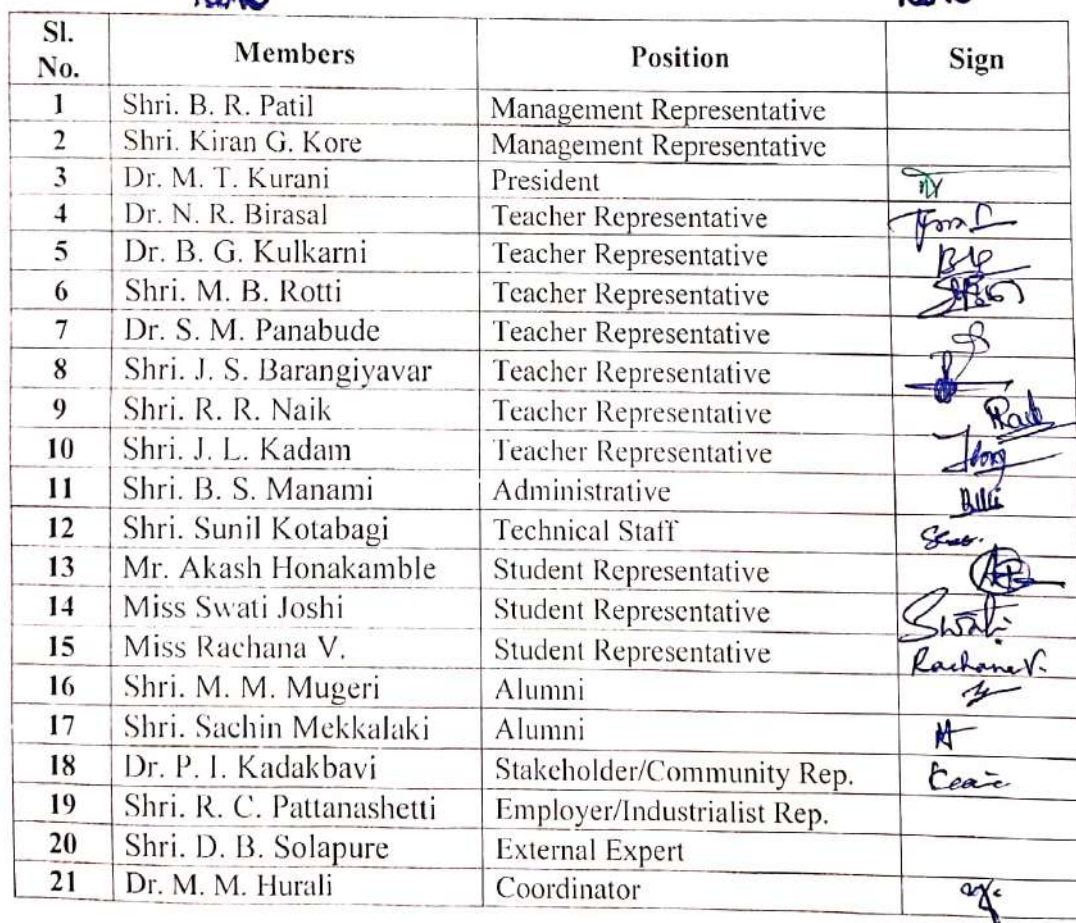 Sl. No. Members Position Sign
1 Shri. B. R. Patil Management Representative
2 Shri. Kiran G. Kore Management Representative
3 Dr. M. T. Kurani President
4 Dr. N. R. Birasal Teacher Representative
5 Dr. B. G. Kulkarni Teacher Representative
6 Shri. M. B. Rotti Teacher Representative
7 Dr. S. M. Panabude Teacher Representative
8 Shri. J. S. Barangiyavar Teacher Representative
9 Shri. R. R. Naik Teacher Representative
10 Shri. J. L. Kadam Teacher Representative
11 Shri. B. S. Manami Administrative
12 Shri. Sunil Kotabagi Technical Staff
13 Mr. Akash Honakamble Student Representative
14 Miss Swati Joshi Student Representative Swati
15 Miss Rachana V. Student Representative Rachana V.
16 Shri. M. M. Mugeri Alumni
17 Shri. Sachin Mekkalaki Alumni
18 Dr. P. I. Kadakbavi Stakeholder/Community Rep.
19 Shri. R. C. Pattanashetti Employer/Industrialist Rep.
20 Shri. D. B. Solapure External Expert
21 Dr. M. M. Hurali Coordinator